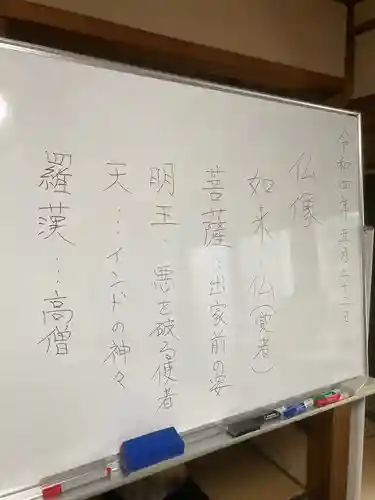 令和四年五月二十二日
仏像
如来…仏(覚者)
菩薩…出家前の姿
明王…悪を破る使者
天…インドの神々
羅漢…高僧